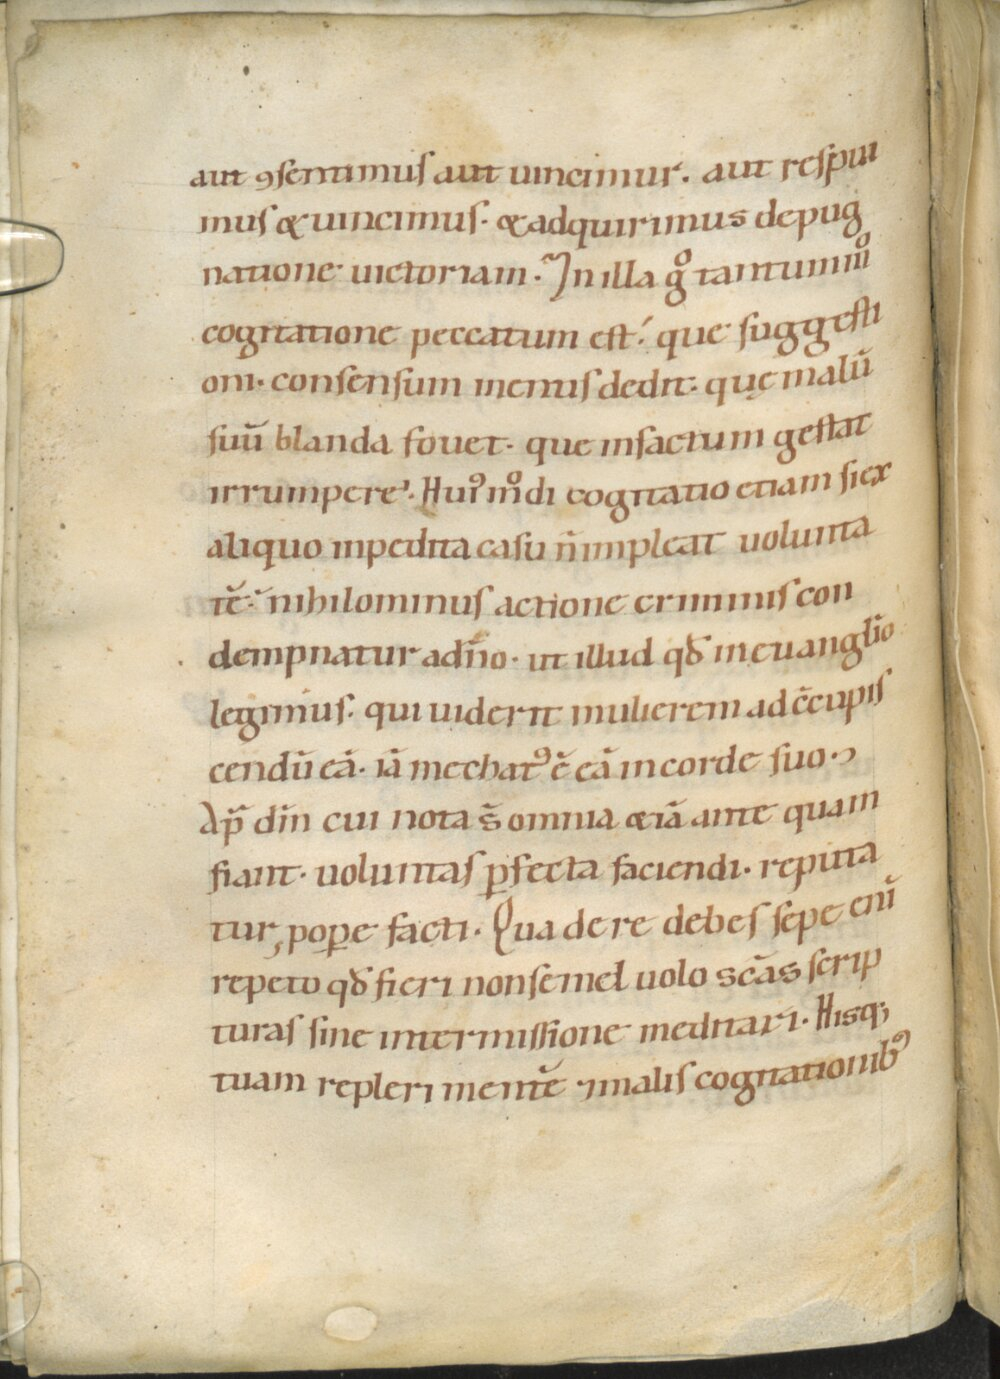 aut ꝯsentimus aut uincimur. aut respui
mus & uincimus. & adquirimus depug
natione uictoriam. In illa gͦ tantummͦ
cogitatione peccatum est. que suggesti
oni. consensum mentis dedit. quę malū
suū blanda fouet. que infactum gestat
irrumpere. Huiꝰmͦdi cogitatio etiam si ex
aliquo inpedita casu n̄ impleat uolunta
tē. nihilominus actione criminis con
dempnatur ad̄no. ut illud qđ in euangl̄io
legimus. qui uiderit mulierem ad c̄cupis
cendū eā. iā mechatꝰ ē eā in corde suo.
Ap̄ dn̄m cui nota s̄ omnia & iā ante quam
fiant. uoluntas ꝑfecta faciendi. reputa
tur, ꝓ oꝑe facti. Qua de re debes sepe enī
repeto qđ fieri non semel uolo sc̄as scrip
turas sine intermissione meditari. Hisq;
tuam repleri mentē ⁊ malis cogitationibꝰ